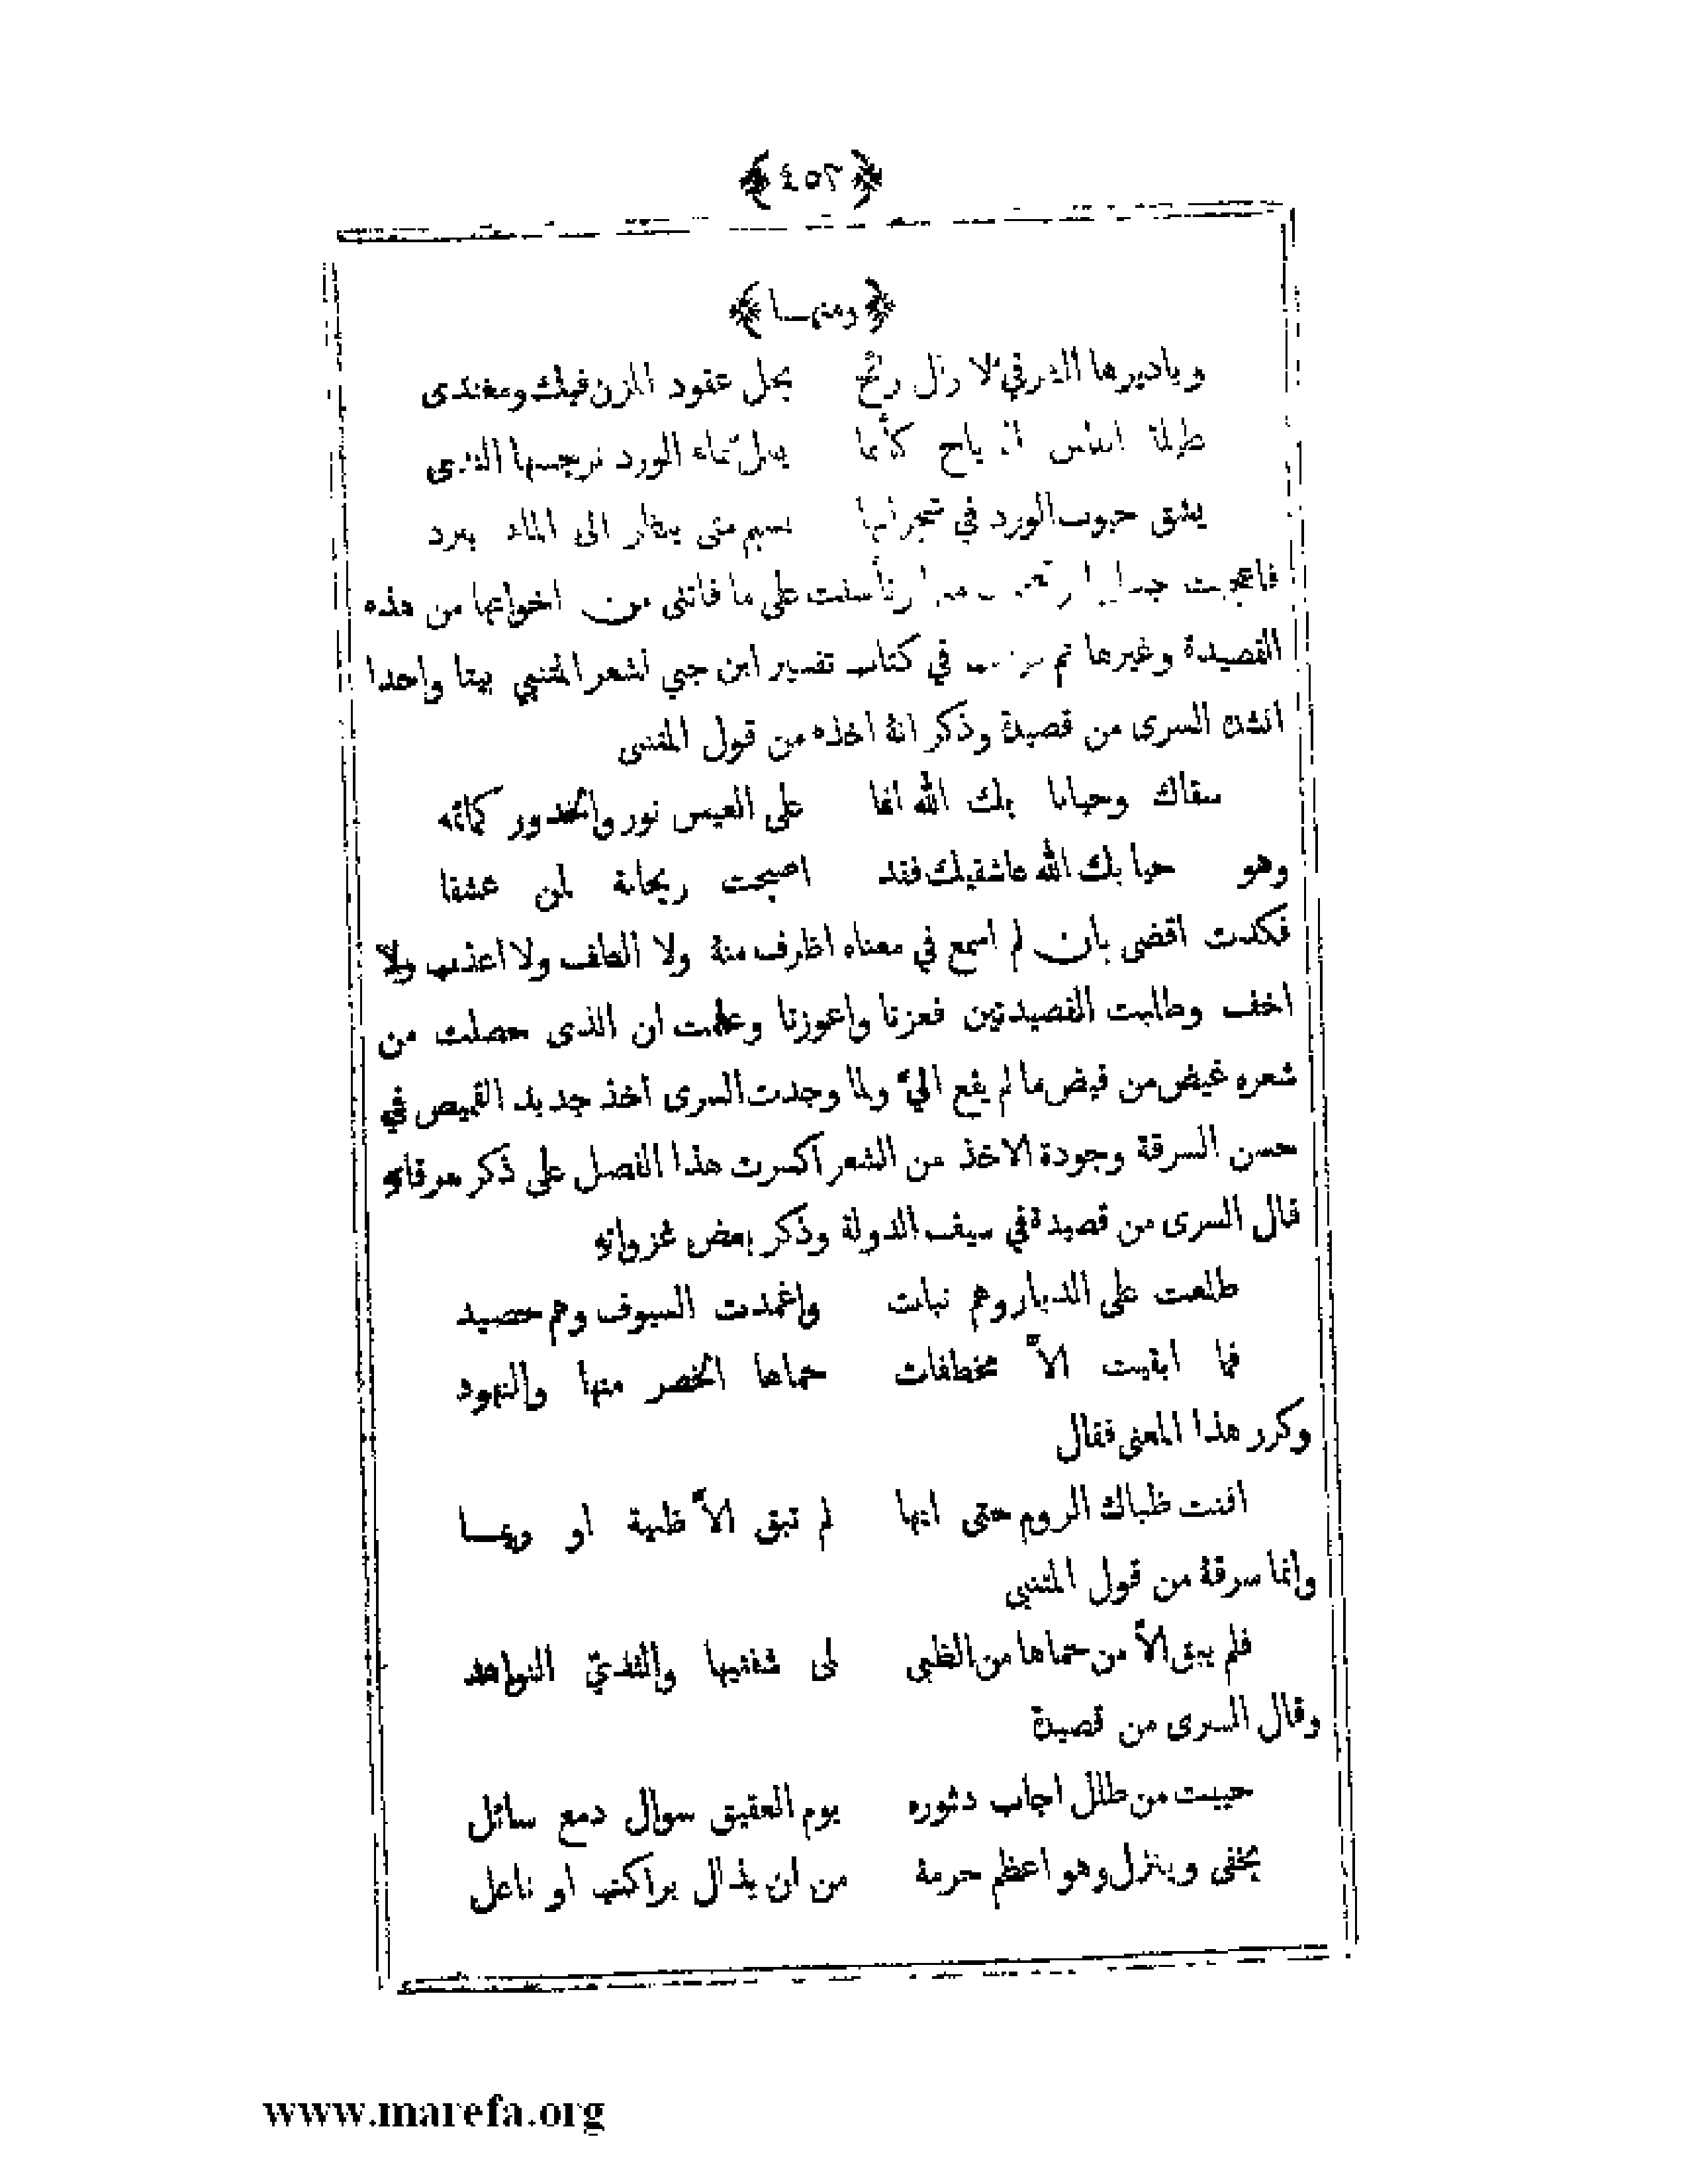 ﴿٤٥٢﴾
﴿ومنهـــا﴾
وياديرها الشرقي لا زال رائح يحل عقود المزن فيك ومغتدى
انفاس الرياح كأنما يعل بماء الورد نرجسها الندى
يشق جيوب الورد في شجراتها نسيم متى ينظر الى الماء يبرد
فاعجبت وتأسفت على ما فاتنى من اخواتها من هذه
القصيدة وغيرها ثم في كتاب تفسير ابن جني لشعر المتنبي بيتا واحدا
انشده السرى من قصيدة وذكر انه اخذه من قول المتنبى
سقاك وحيانا بك الله انما على العيس نور والخدور كمائمه
وهو حيا بك الله عاشقيك فقد اصبحت ريحانة لمن عشقا
فكدت اقضى بان لم اسمع في معناه اظرف منه ولا الطف ولا اعذب ولا
اخف وطلبت القصيدتين فعزتا واعوزتا وعلمت ان الذى حصلت من
شعره غيض من فيض ما لم يقع اليّ ولما وجدت السرى اخذ جديد القميص في
حسن السرقة وجودة الاخذ من الشعر اكسرت هذا الفصل على ذكر سرقاته
قال السرى من قصيدة في سيف الدولة وذكر بعض غزواته
طلعت على الديار وهم نبات واغمدت السيوف وهم حصيد
فما ابقيت الاّ مخطفات حماها الخصر منها والنهود
وكرر هذا المعنى فقال
افنت ظباك الروم حتى انها لم تبق الاّ ظبية او ريمـــا
وانما سرقة من قول المتنبي
فلم يبق الاّ من حماها من الظبى لمى شفتيها والثديّ النواهد
وقال السرى من قصيدة
حييت من طلل اجاب دثوره يوم العقيق سوال دمع سائل
يخفى وينزل وهو اعظم حرمة من ان يذال براكب او ناعل
www.marefa.org